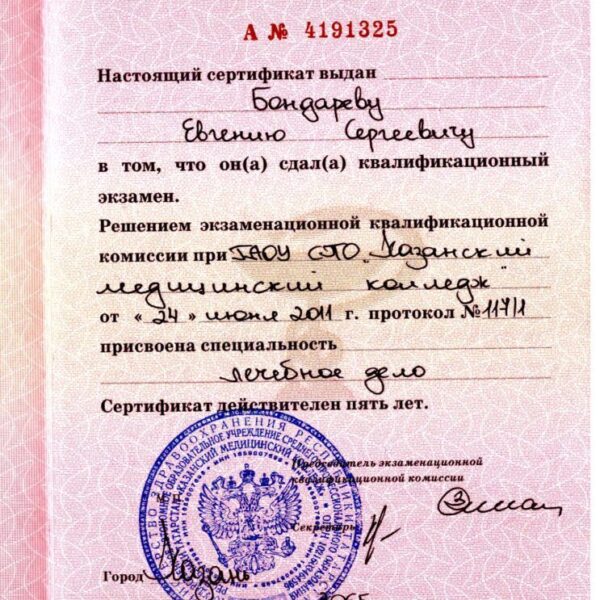 А № 4191325
Настоящий сертификат выдан
Бондареву
Евгению Сергеевичу
в том, что он(а) сдал(а) квалификационный
экзамен.
Решением экзаменационной квалификационной
комиссии при ГАОУ СПО „Казанский
медицинский колледж"
от « 24 » июня 2011 г. протокол № 117/1
присвоена специальность
лечебное дело
Сертификат действителен пять лет.
Председатель экзаменационной
квалификационной комиссии
М.П.
Секретарь
Город Казань